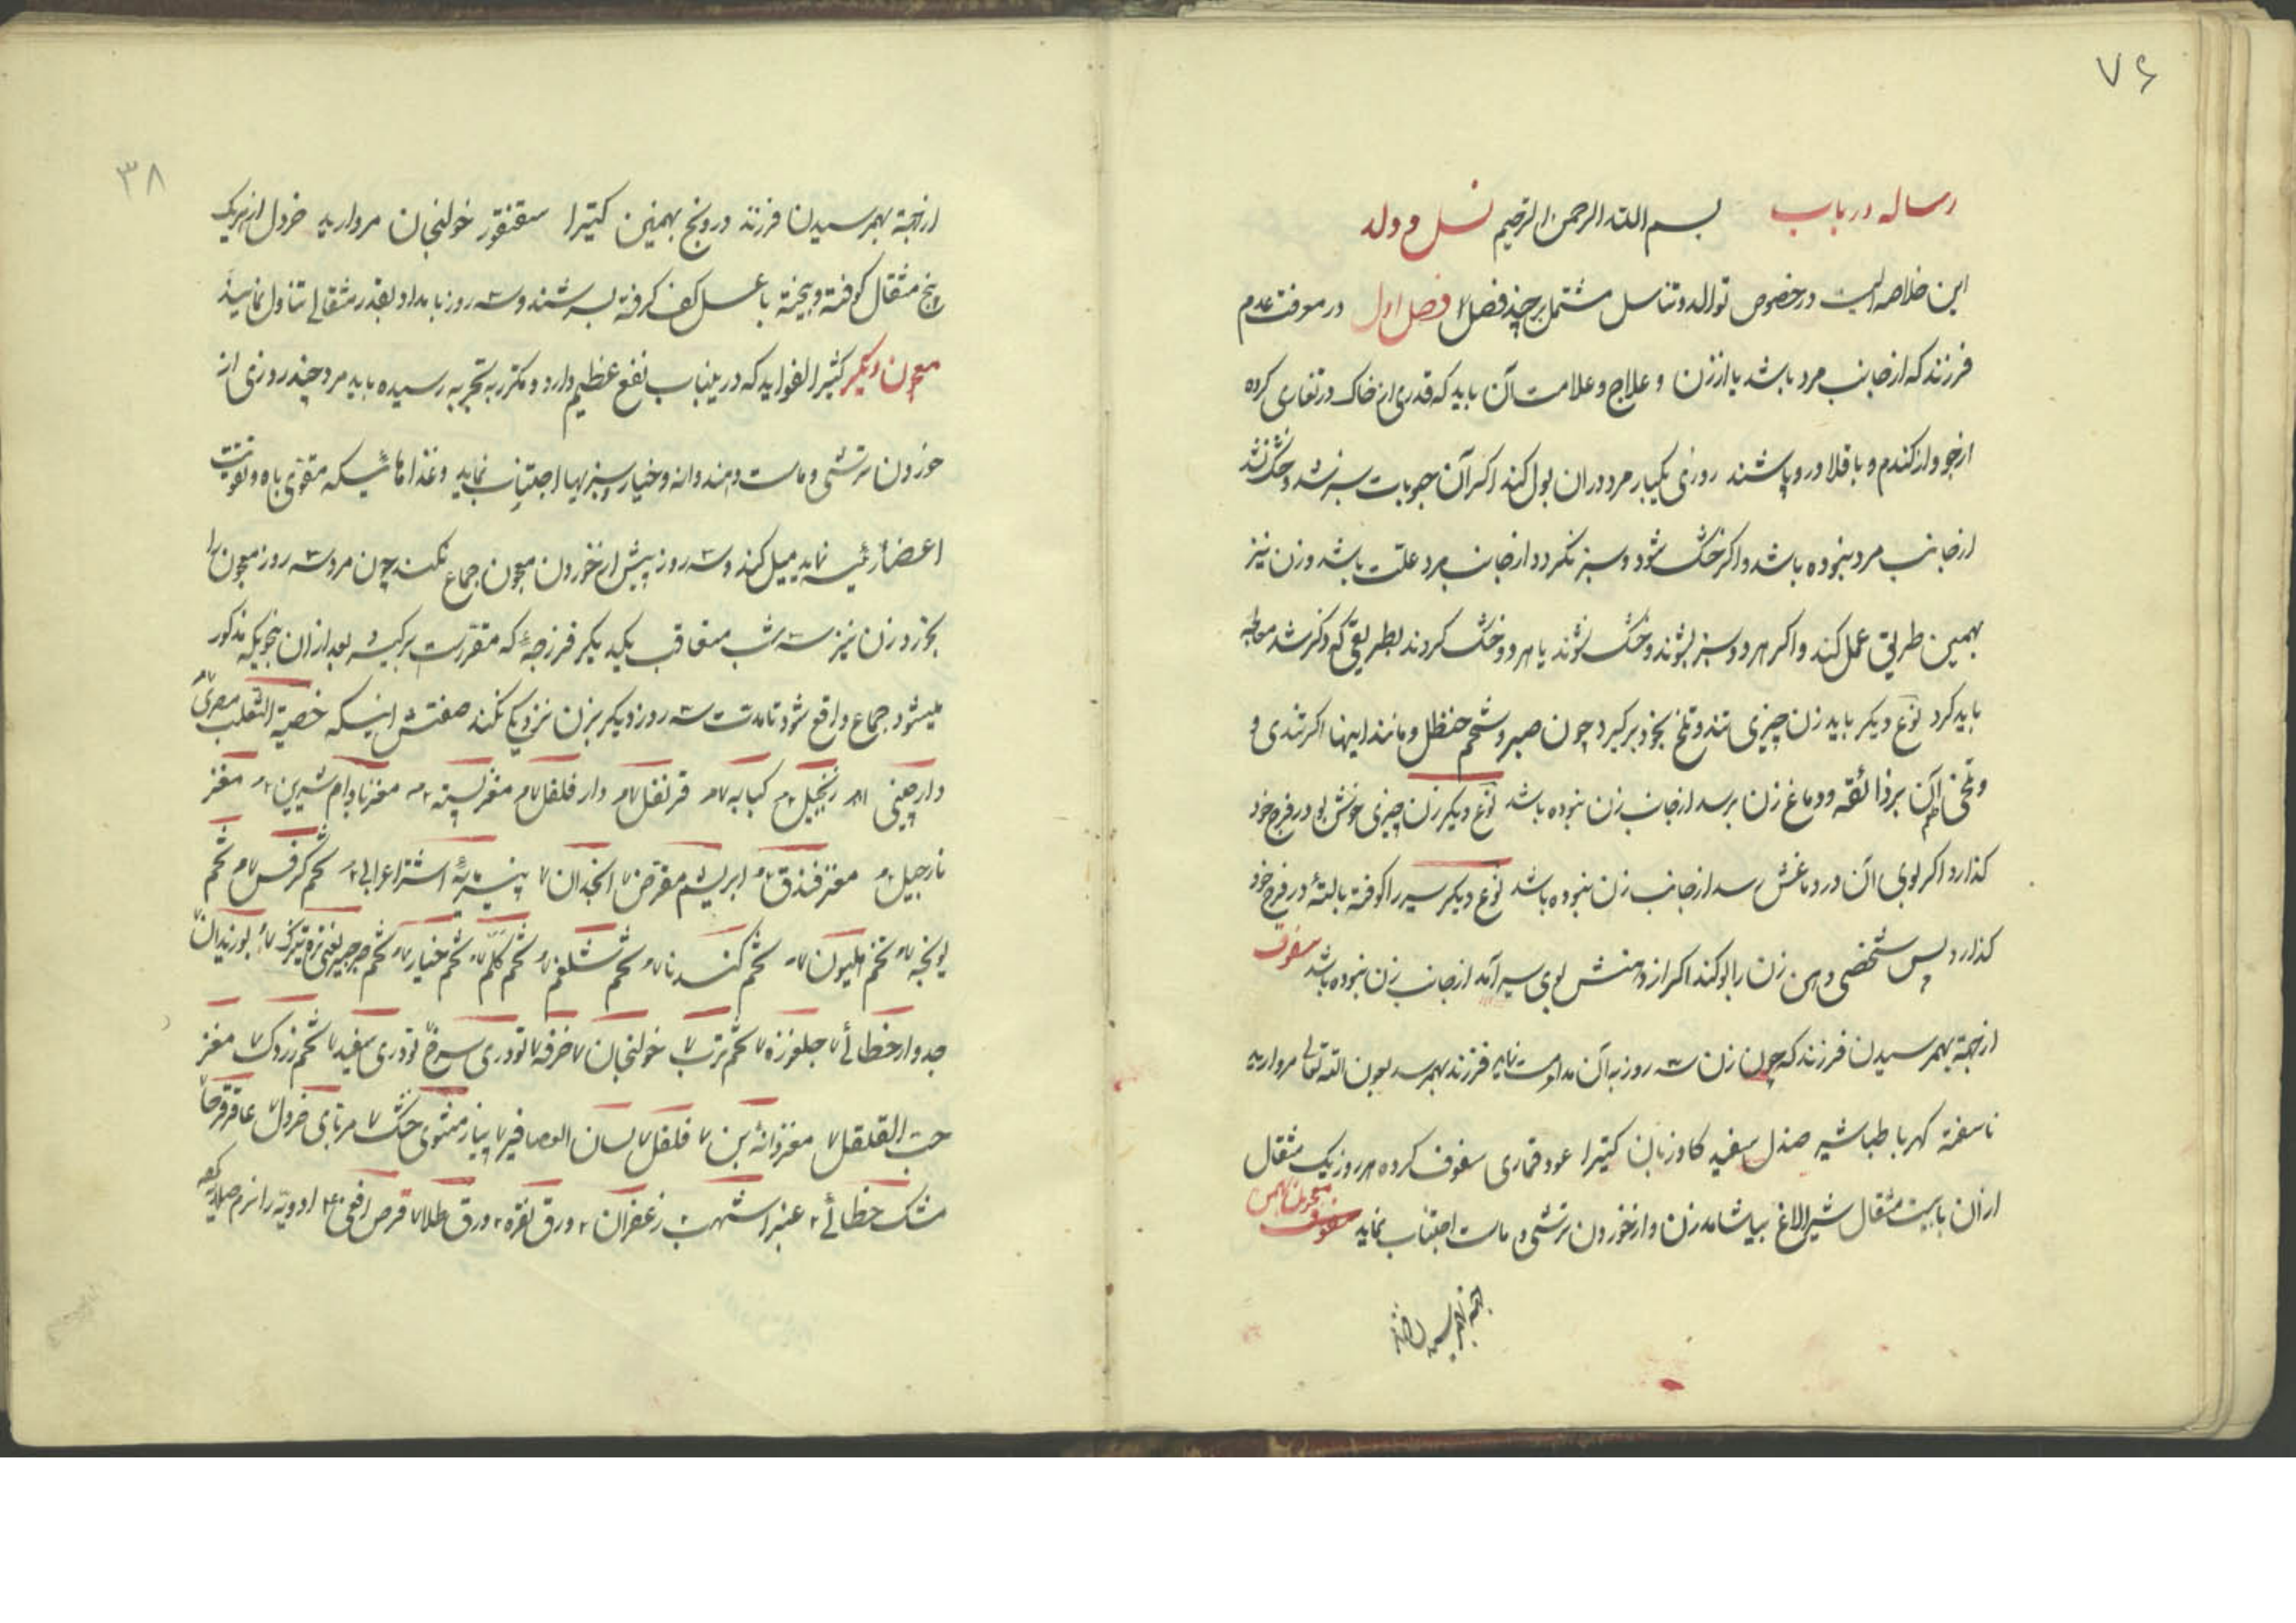 ۷۶
رساله در باب بسم الله الرحمن الرحیم نسل و ولد
این خلاصه ایست در خصوص توالد و تناسل مشتمل بر چند فصل فصل اول در معرفت عدم
فرزند که از جانب مرد باشد یا از زن و علاج و علامت آن باید که قدری از خاک در تغاری کرده
از جو و از کندم و باقلا در و پاشند روزی یکبار مرد در ان بول کند اکر آن حبوبات سبز شد و خشک نشد
از جانب مرد نبوده باشد و اکر خشک شود و سبز نکردد از جانب مرد علت باشد و زن نیز
بهمین طریق عمل کند و اکر هر دو سبز بشوند و خشک نشوند یا هر دو خشک کردند بطریقی که ذکر شد معالجه
باید کرد نوع دیکر باید زن چیزی تند و تلخ بخود برکیرد چون صبر و شحم حنظل و مانند اینها اکر تندی و
و تلخی طعم آن بر ذائقه و دماغ زن برسد از جانب زن نبوده باشد نوع دیکر زن چیزی خوش بو در فرج خود
کذارد اکر بوی آن در دماغش رسد از جانب زن نبوده باشد نوع دیکر سیر را کوفته با لتهٔ در فرج خود
کذارد پس شخصی دهن زن را بو کند اکر از دهنش بوی سیر آمد از جانب زن نبوده باشد سفوف
از جهة بهمرسیدن فرزند که چون زن سه روز به آن مداومت نماید فرزند بهمرسد بعون الله تعالی مروارید
ناسفته کهربا طباشیر صندل سفید کاوزبان کتیرا عود قماری سفوف کرده هر روز یک مثقال
از ان با بیست مثقال شیر الاغ بیاشامد زن و از خوردن ترشی و ماست اجتناب نماید معجون بهمن
۳۸
از جهة بهمرسیدن فرزند درونج بهمنین کتیرا سقنقور خولنجان مروارید خردل از هر یک
پنج مثقال کوفته و بیخته با عسل کف کرفته بسرشند و سه روز بامداد بقدر مثقالی تناول نمایند
معجون دیکر کثیر الفواید که در ینباب نفع عظیم دارد و مکرر به تجربه رسیده باید مرد چند روزی از
خوردن ترشی و ماست و هندوانه و خیار و سبزیها اجتناب نماید و غذاهائیکه مقوی باه و تقویت
اعضا رئیسه نماید میل کند و سه روز پیش از خوردن معجون جماع نکند چون مرد سه روز معجون را
بخورد زن نیز سه شب متعاقب یکدیکر فرزجهٔ که مقررست برکیرد بعد از ان بنحویکه مذکور
میشود جماع واقع شود تا مدت سه روز دیکر بزن نزدیکی نکند صفتش اینکه خصیة الثعلب مصری
دارچینی زنجبیل کبابه قرنفل دار فلفل مغز پسته مغز بادام شیرین مغز
نارجیل مغز فندق ابریشم مقرض انجدان پنیر مایهٔ اشتر اعرابی تخم کرفس تخم
یونجه تخم هلیون تخم کندنا تخم شلغم تخم کلم تخم خیار تخم جرجیر یعنی تره تیزک بوزیدان
جدوار خطائی جلغوزه تخم ترب خولنجان خرفه تودری سرخ تودری سفید تخم زردک مغز
حب القلقل مغز دانهٔ بن فلفل لسان العصافیر پیاز مشوی خشک مربای خردل عاقرقرحا
مشک خطائی عنبر اشهب زعفران ورق نقره ورق طلا قرص افعی ادویه را نرم صلایه کرده